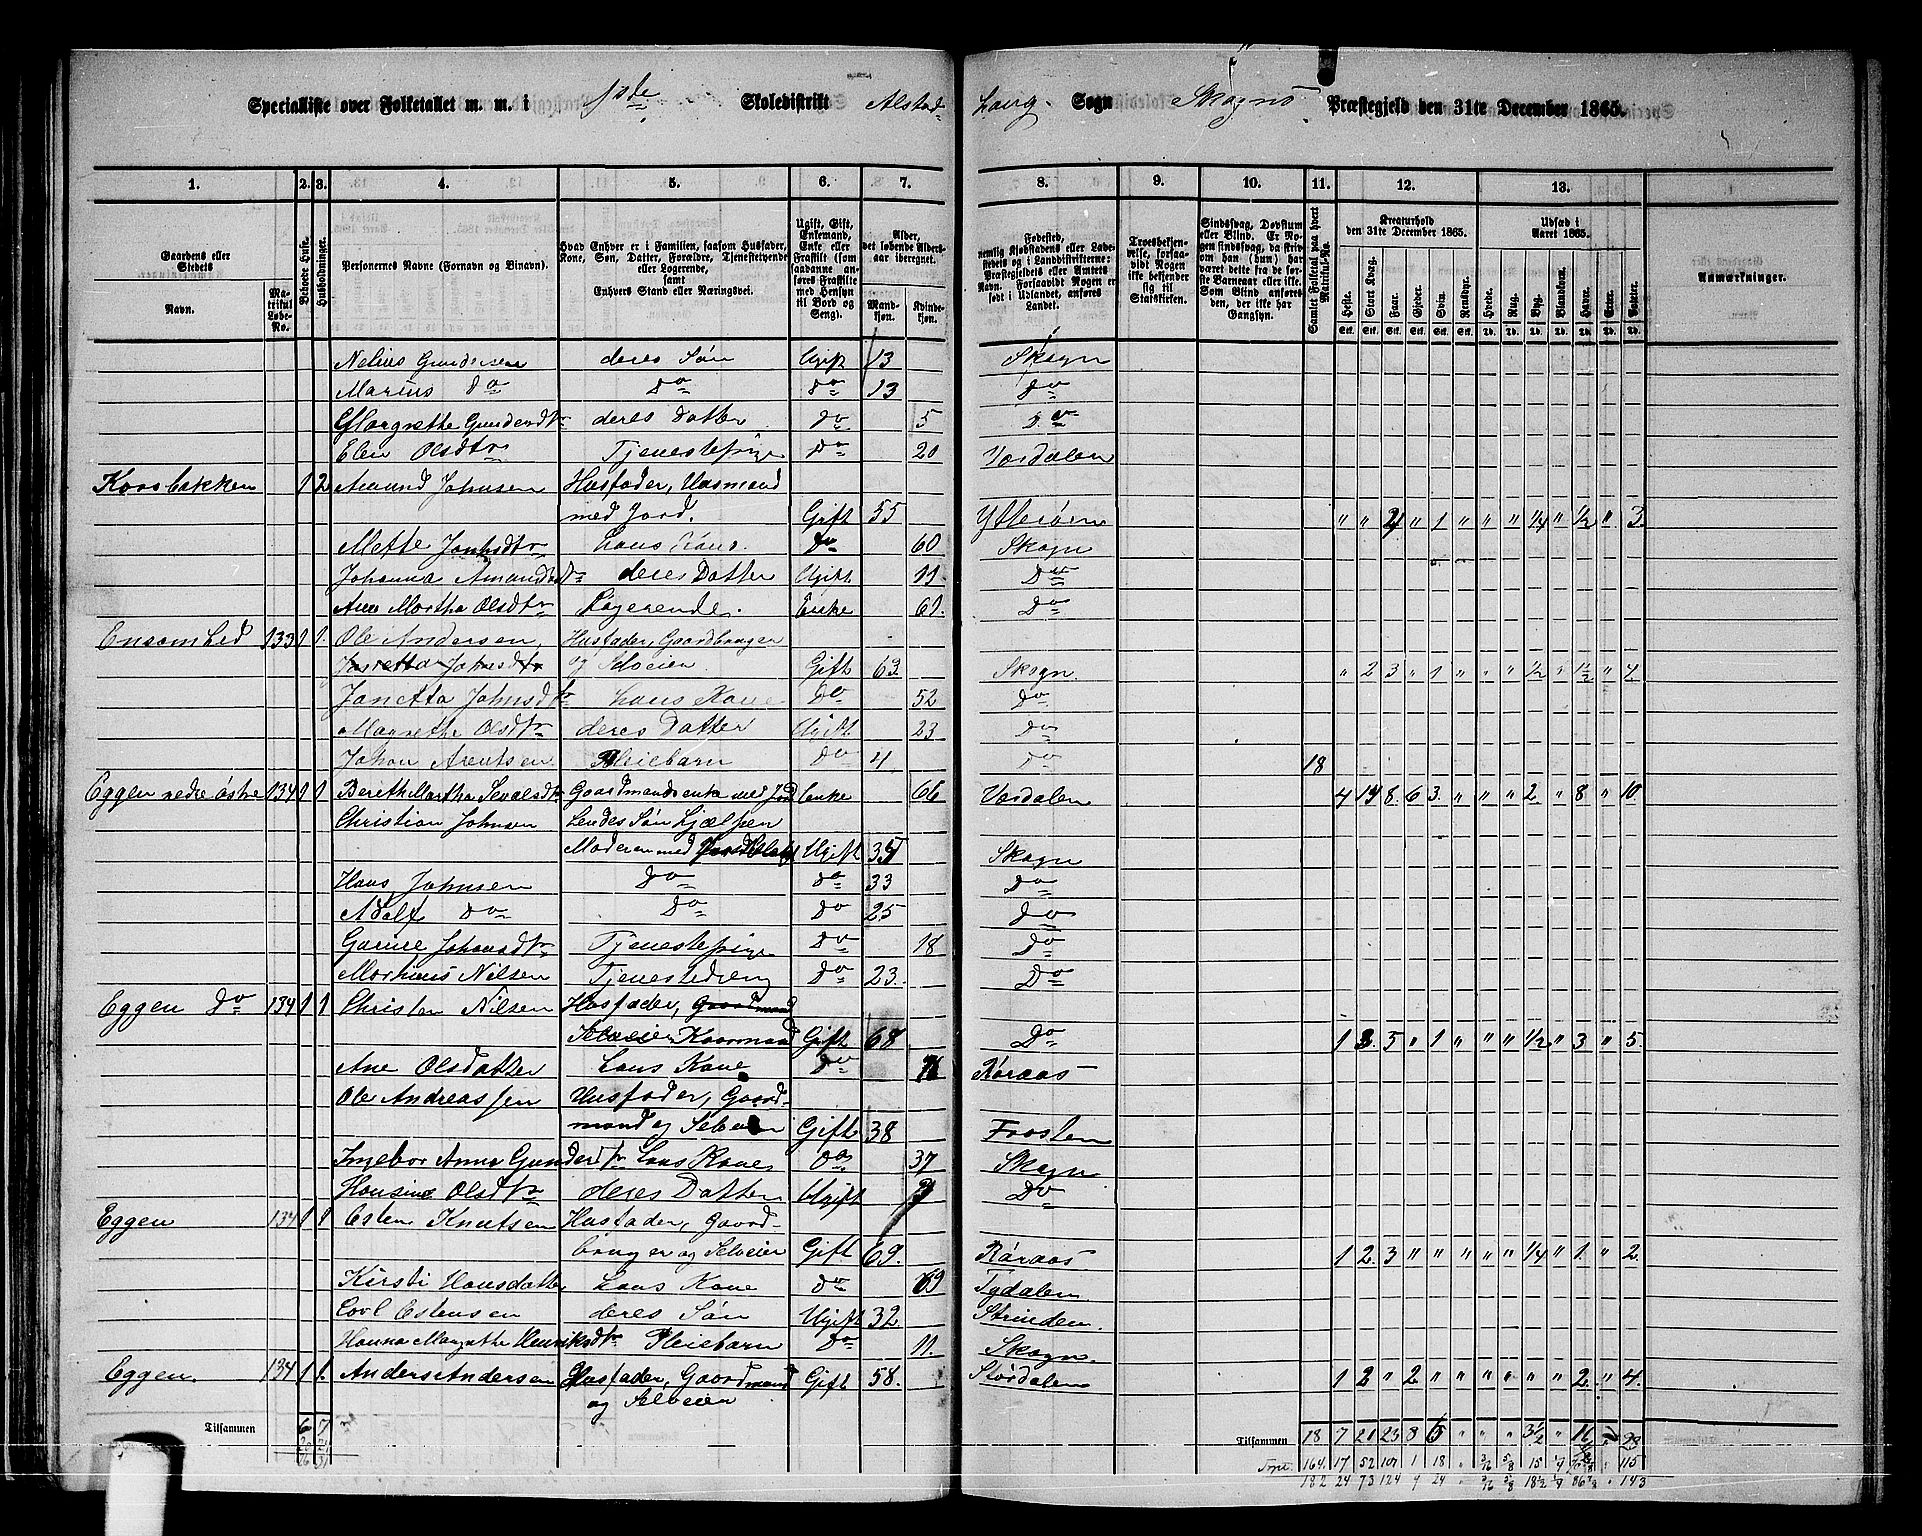 Specialliste over Folketallet m. m. i 7de Skoledistrikt Alstad-
houg Sogn Skogns Præstegjeld den 31te December 1865.
1. 2. 3. 4. 5. 6. 7. 8. 9. 10. 11. 12. 13.
Gaardens eller Stedets Navn. Matrikul Løbe-No. Beboede Huse. Husholdninger.
Personernes Navne (Fornavn og Binavn).
Hvad Enhver er i Familien, saasom Husfader, Kone, Søn, Datter, Forældre, Tjenestetyende eller Logerende, samt Enhvers Stand eller Næringsvei.
Ugift, Gift, Enkemand, Enke eller Fraskilt (som saadanne anføres Fraskilte med Hensyn til Bord og Seng).
Alder, det løbende Aldersaar iberegnet. Mandkjøn. Kvindekjøn.
Fødested,
Troesbekjendelse, forsaavidt Nogen ikke bekjender sig til Statskirken.
Samlet Folketal paa hvert Matrikul-No.
Kreaturhold den 31te December 1865.
Heste. Stort Kvæg. Faar. Gjeder. Svin. Rensdyr.
Udsæd i Aaret 1865.
Hvede. Rug. Byg. Blandkorn. Havre. Erter. Poteter.
Anmærkninger.
Nelius Gundersen deres Søn Ugift 13 Skogn
Marius Do Do Do 13 Do
Margrethe Gundersdtr deres Datter Do 5 Do
Elen Olsdtr Tjenestepige Do 20 Værdalen
Korsbakken 1 2 Amund Johnsen Husfader, Husmand
med Jord. Gift 55 Ytterøen " " 2 " 1 " " " 1/4 " 1/2 " 3
Mette Hans Kone. Do 60 Skogn
Johanna deres Datter Ugift 11. Do
Ane Martha Olsdtr Logerende. Enke 61. Do
Ensomhed 133 1 1. Ole Andersen, Husfader, Gaardbruger
og Selveier. Gift 63. Skogn. " 2 3 " 1 " " " 1/2 " 1 1/2 " 4
Janetta Johnsdtr hans Kone Do 52 Do
Margrethe Olsdtr deres Datter Ugift 23 Do
Johan Arentsen Pleiebarn Do 4 Do 18
Eggen nedre østre 134 1 1 Bereth Martha Sevalsdtr Gaardmandsenke med Jord Enke 66 Værdalen 4 14 8. 6 3. " " " 2 " 8 " 10
Christian Johnsen hendes Søn hjælper
Moderen med Ugift 35 Skogn
Hans Johnsen Do Do 33 Do
Adolf Do Do Do 25 Do
Gurine Johansdtr Tjenestepige Do 18 Do
Morthinus Nilsen Tjenestedreng Do 23. Do
Eggen Do 134 1 1 Christen Nilsen Husfader, Gaardmand
Selveier Gift 68 Do 1 3. 5 " 1 " " " 1/2 " 3 " 5.
Ane Olsdatter hans Kone Do Røraas
Ole Andreassen Husfader, Gaard-
mand og Selveier Gift 38 Frosten
Ingebor Anna Gundersdtr hans Kone Do 37 Skogn
Hansine Olsdtr deres Datter Ugift 3 Do
Eggen 134 1 1 Esten Knutsen Husfader, Gaard-
bruger og Selveier Gift 69. Røraas 1 2. 3 " " " " " 1/4 " 1. " 2.
Kirsti Hansdatter hans Kone Do 69 Tydalen
Estensen deres Søn Ugift 32 Strinden.
Hanna Margrethe Henriksdtr Pleiebarn Do 11. Skogn.
Eggen. 134 1 1. Anders Andersen Husfader, Gaardmand Gift 58. Størdalen 1 2 " 2 " " " " " " 2. " 4.
og Selveier
Tilsammen 6 7
Tilsammen 18 7 21 23 8 6 " " " 3 1/2 " 16 " 28
164. 17 52 101 1 18 115
182 24 73 124 9 24 143